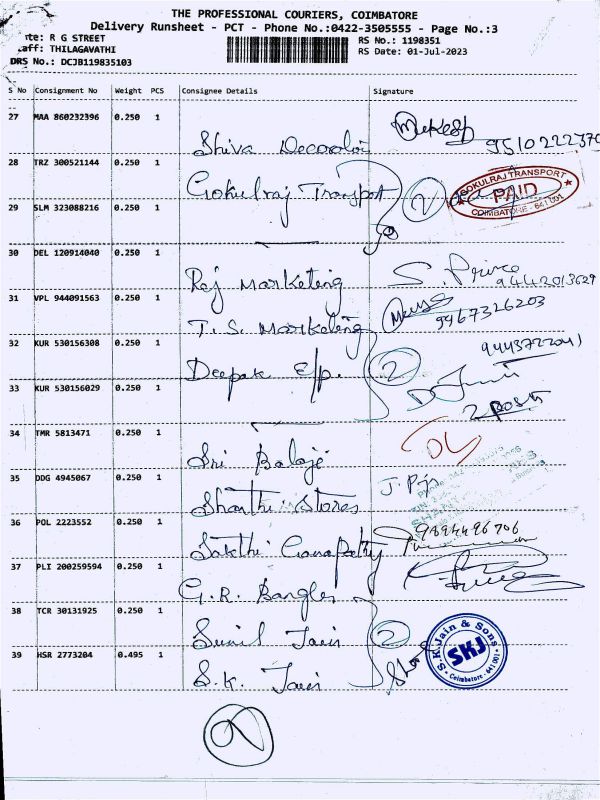 THE PROFESSIONAL COURIERS, COIMBATORE
Delivery Runsheet - PCT - Phone No.:0422-3505555 - Page No.:3
te: R G STREET
aff: THILAGAVATHI
DRS No.: DCJB119835103
RS No.: 1198351
RS Date: 01-Jul-2023
S No Consignment No Weight PCS Consignee Details Signature
27 MAA 860232396 0.250 1 Shiva Mukesh
28 TRZ 300521144 0.250 1 Gokulraj Transpot 2
GOKULRAJ TRANSPORT
PAID
COIMBATORE - 641 001
29 SLM 323088216 0.250 1
30 DEL 120914040 0.250 1 Raj Marketing S. Prince
9442013629
31 VPL 944091563 0.250 1 T. S. Marketing
9467326203
32 KUR 530156308 0.250 1 Deepak E/p. 2
33 KUR 530156029 0.250 1
2 post
34 TMR 5813471 0.250 1 Sri Balaje
35 DDG 4945067 0.250 1 Shanthi Stores
36 POL 2223552 0.250 1 Sakthi Ganapathy 9894496706
37 PLI 200259594 0.250 1 G. R. Bangles
38 TCR 30131925 0.250 1 Sunil Jain 2
39 HSR 2773204 0.495 1 S. K. Jain
S.K. Jain & Sons
SKJ
Coimbatore - 641 001